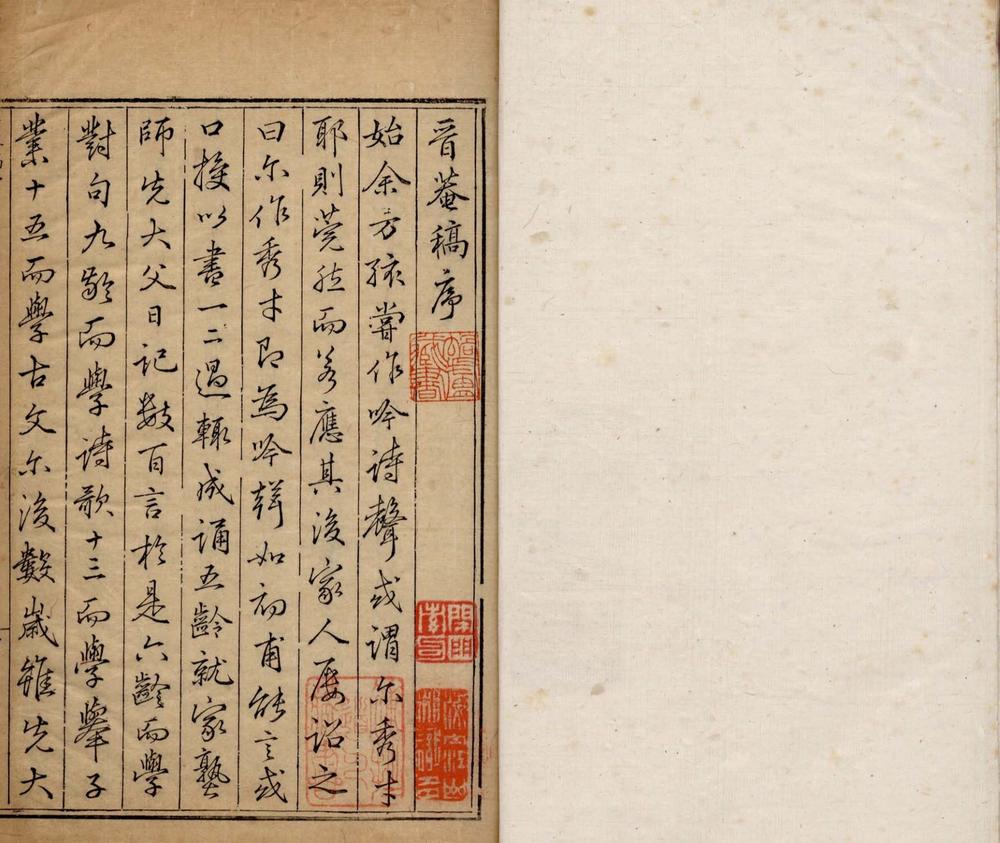 晋菴稿序
始余方孩嘗作吟詩聲或謂尔秀才
耶則莞然而若應其後家人屡詔之
曰尔作秀才即為吟聲如初甫能言或
口授以書一二過輒成誦五齡就家塾
師先大父日記数百言於是六齡而學
對句九齡而學詩歌十三而學舉子
業十五而學古文尔後數歲雖先大